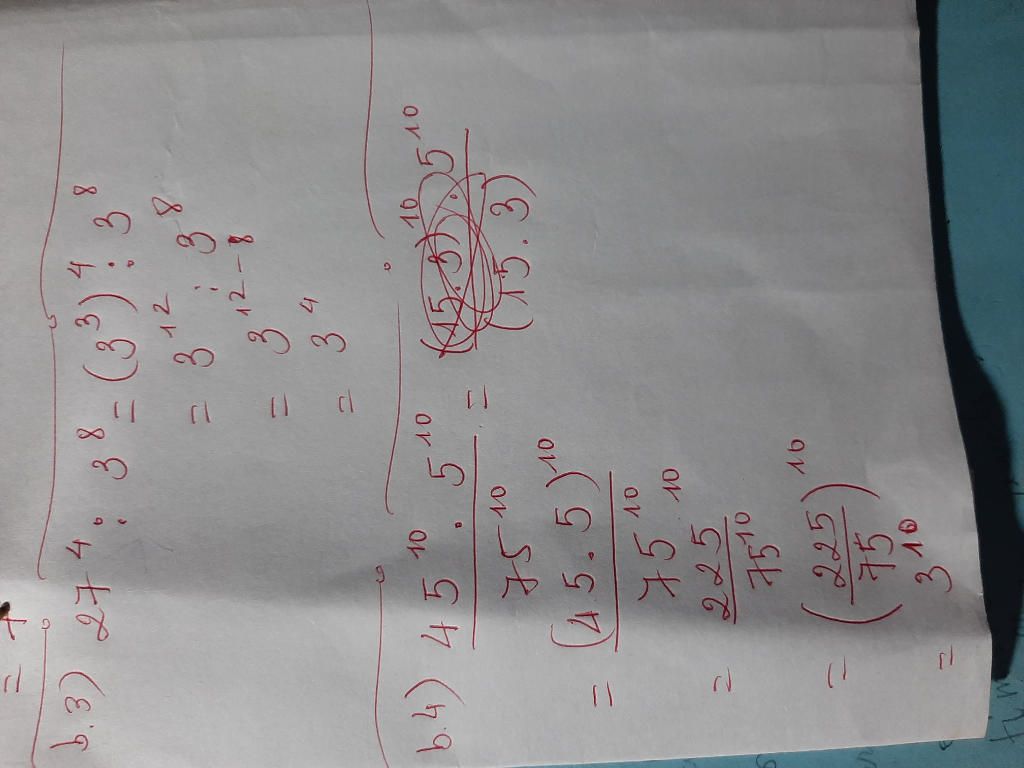 = 7
b.3) 27^4 : 3^8 = (3^3)^4 : 3^8
= 3^12 : 3^8
= 3^12-8
= 3^4
b.4) 45^10 . 5^10 / 75^10 = 5^10 / (15.3)
= (45.5)^10 / 75^10
= 225^10 / 75^10
= (225/75)^10
= 3^10